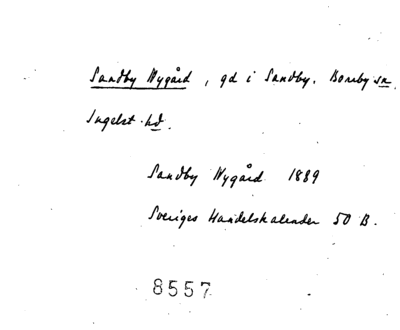 Sandby Nygård, gd i Sandby. Borrby sn,
Ingelst. hd.
Sandby Nygård 1889
Sveriges Handelskalender 50 B.
8557